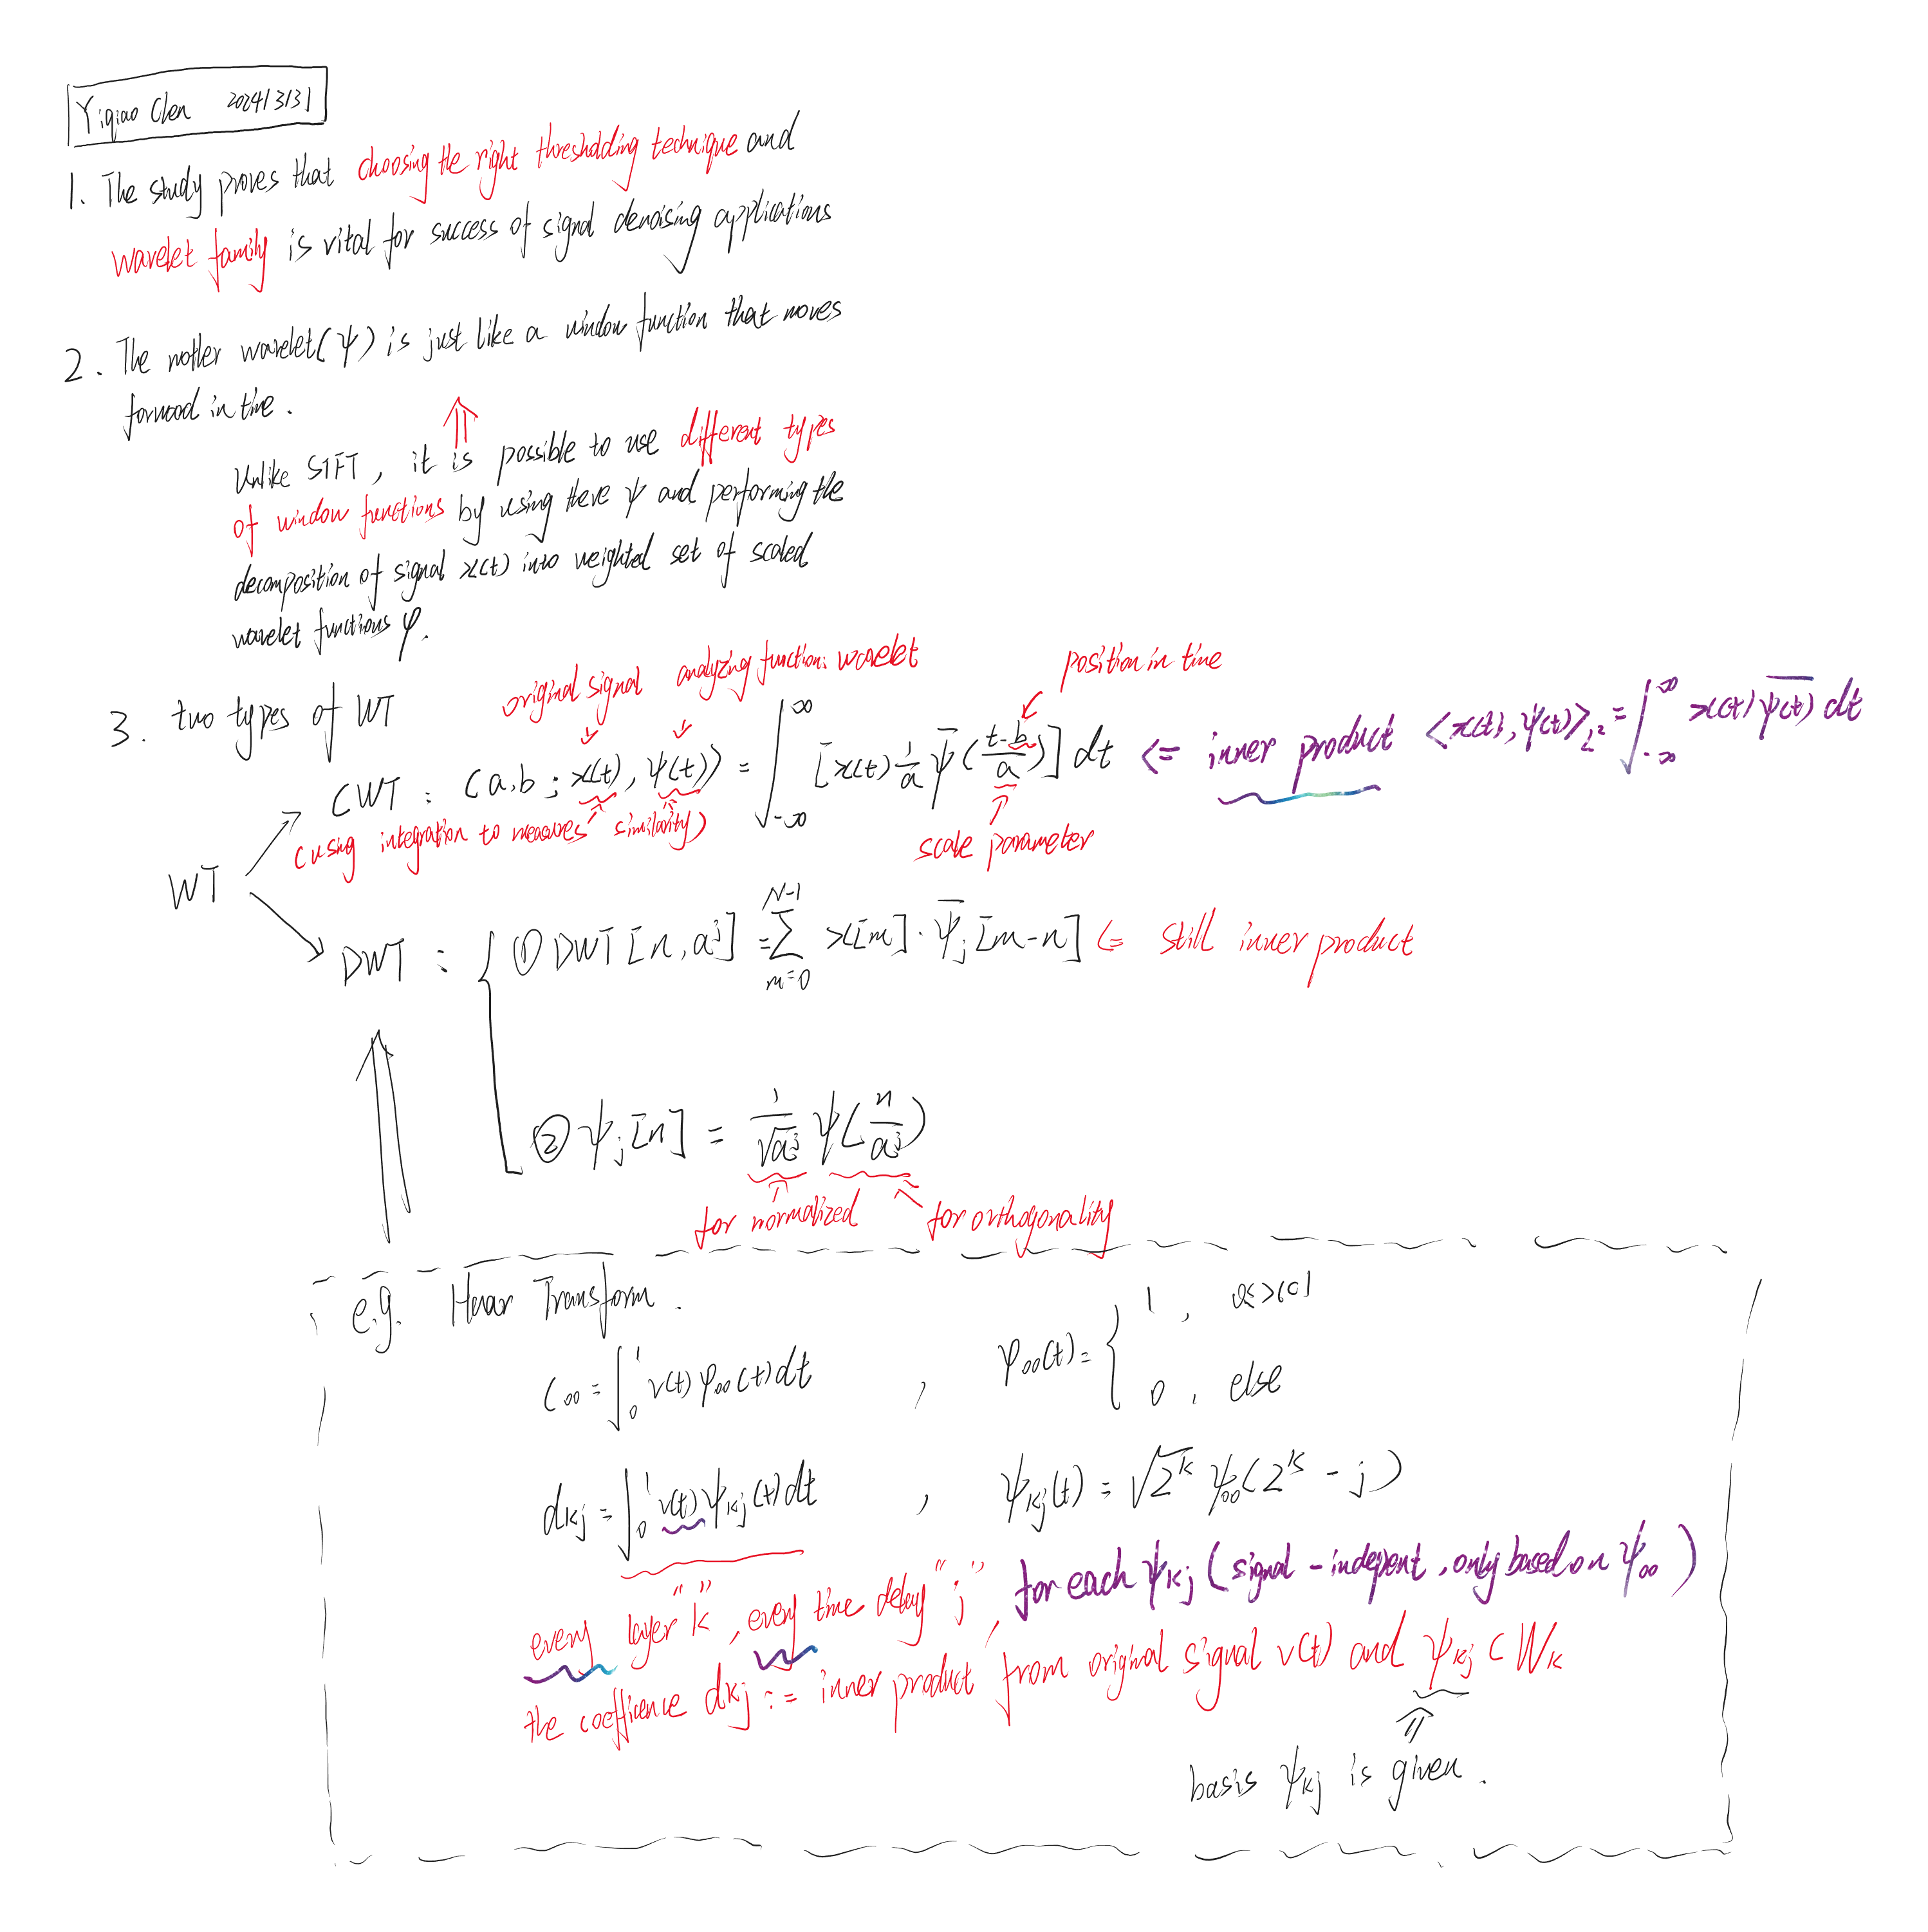 Yiqiao Chen 2024/3/31
1. The study proves that choosing the right thresholding technique and
wavelet family is vital for success of signal denoising applications
2. The mother wavelet(ψ) is just like a window function that moves
forward in time.
⇑
Unlike STFT, it is possible to use different types
of window functions by using there ψ and performing the
decomposition of signal x(t) into weighted set of scaled
wavelet functions φ.
3. two types of WT
original signal analyzing function: wavelet
position in time
WT
CWT : (a,b ; x(t), ψ(t)) = ∫_{-∞}^{∞} [x(t) 1/a ψ̅((t-b)/a)] dt <= inner product <x(t), ψ(t)>_{L²} = ∫_{-∞}^{∞} x(t) \overline{ψ(t)} dt
(using integration to measures similarity)
scale parameter
DWT : { ① DWT [n, a^j] = Σ_{m=0}^{N-1} x[m] · ψ̅_j [m-n] <= still inner product
② ψ_j [n] = 1/√(a^j) ψ(n/a^j)
for normalized for orthogonality
e.g. Haar Transform.
C₀₀ = ∫_0^1 v(t) φ₀₀(t) dt , φ₀₀(t) = { 1 , 0≤x<1
0 , else
d_kj = ∫_0^1 v(t) ψ_kj(t) dt , ψ_kj(t) = √2^k ψ₀₀(2^k - j)
every layer "k", every time delay "j", for each ψ_kj (signal-indepent, only based on ψ₀₀)
the coefficence d_kj := inner product from original signal v(t) and ψ_kj ⊂ W_k
⇑
basis ψ_kj is given.